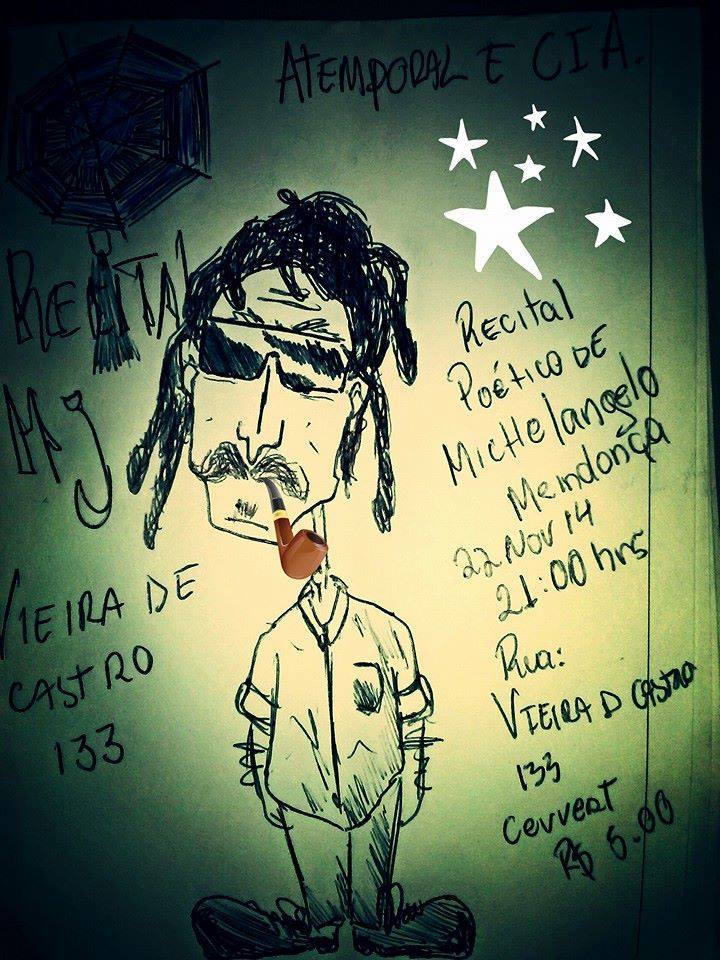 ATEMPORAL E CIA.
RECITAL
MJ
VIEIRA DE
CASTRO
133
RECITAL
POÉTICO DE
MICHELANGELO
MENDONÇA
22 NOV 14
21:00 hrs
RUA:
VIEIRA D CASTRO
133
CEVVERT
R$ 5.00